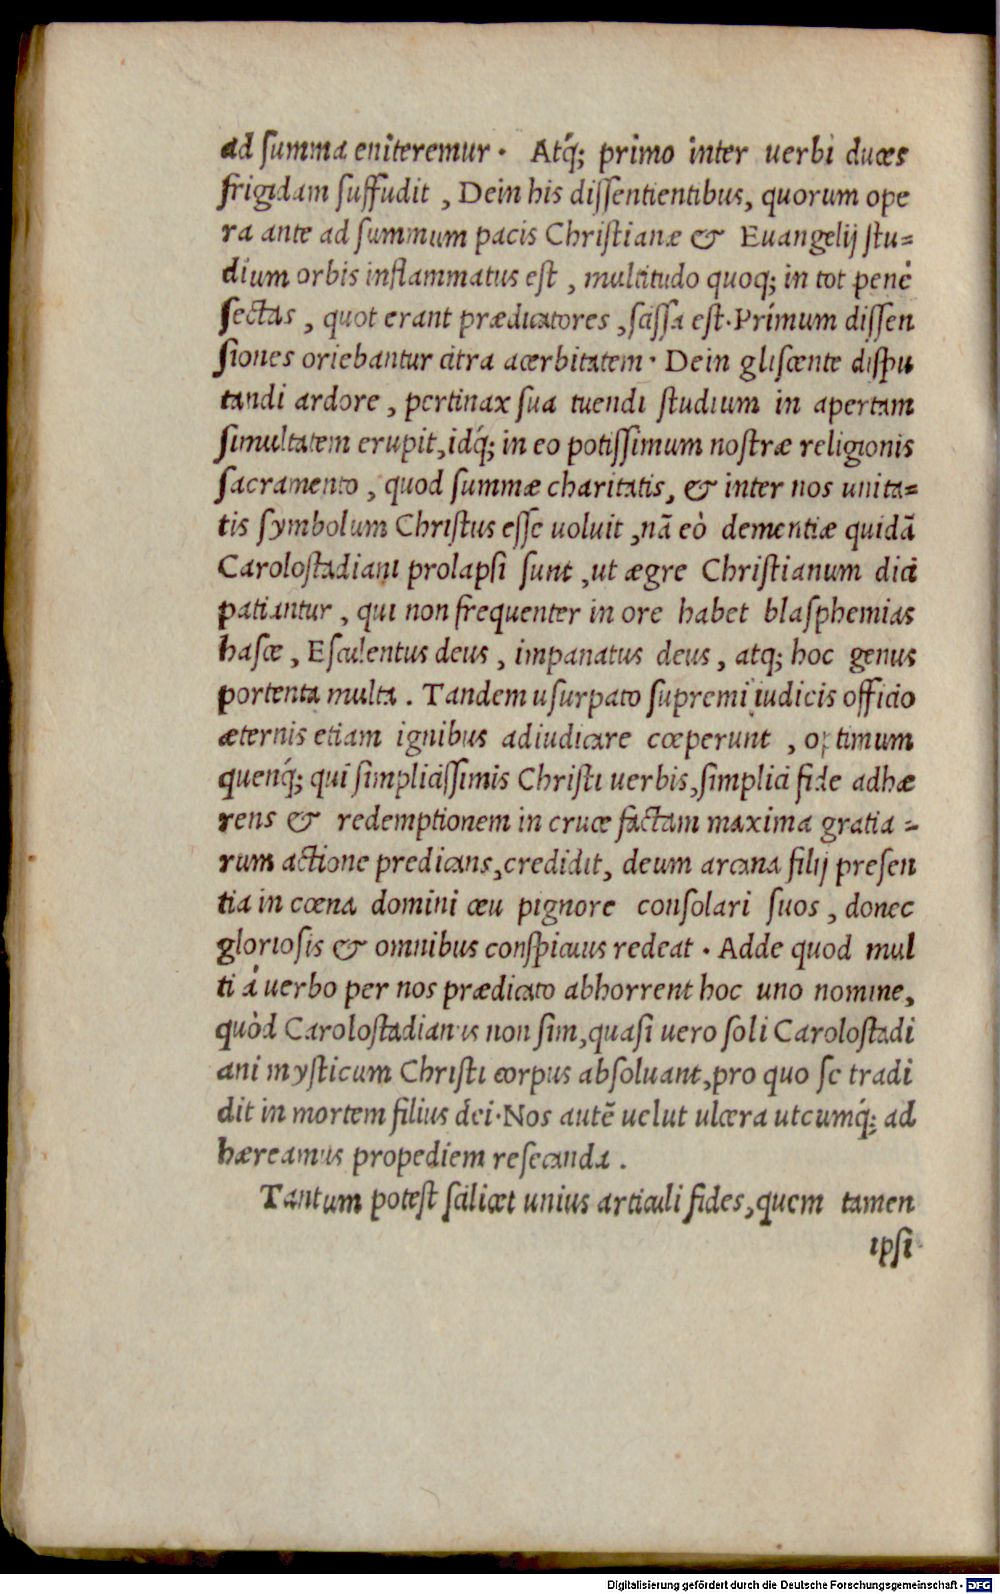 ad ſumma eniteremur · Atq́; primo inter uerbi duces
frigidam ſuffudit , Dein his diſſentientibus, quorum ope
ra ante ad ſummum pacis Chriſtianæ & Euangelij ſtu=
dium orbis inflammatus eſt , multitudo quoq; in tot penè
ſectas , quot erant prædicatores , ſciſſa eſt · Primum diſſen
ſiones oriebantur citra acerbitatem · Dein gliſcente diſpu
tandi ardore , pertinax ſua tuendi ſtudium in apertam
ſimultatem erupit, idq́; in eo potiſſimum noſtræ religionis
ſacramento , quod ſummæ charitatis, & inter nos unita=
tis ſymbolum Chriſtus eſſe uoluit , nã eò dementiæ quidã
Caroloſtadiani prolapſi ſunt , ut ægre Chriſtianum dici
patiantur , qui non frequenter in ore habet blaſphemias
haſce , Eſculentus deus , impanatus deus , atq; hoc genus
portenta multa . Tandem uſurpato ſupremi iudicis officio
æternis etiam ignibus adiudicare cœperunt , optimum
quenq́; qui ſimpliciſſimis Chriſti uerbis, ſimplici fide adhæ
rens & redemptionem in cruce factam maxima gratia =
rum actione predicans, credidit, deum arcana filij preſen
tia in cœna domini ceu pignore conſolari ſuos , donec
glorioſis & omnibus conſpicuus redeat · Adde quod mul
ti à uerbo per nos prædicato abhorrent hoc uno nomine,
quòd Caroloſtadianus non ſim, quaſi uero ſoli Caroloſtadi
ani myſticum Chriſti corpus abſoluant, pro quo ſe tradi
dit in mortem filius dei · Nos autẽ uelut ulcera utcumq́; ad
hæreamus propediem reſecanda .
Tantum poteſt ſcilicet unius articuli fides, quem tamen
ipſi
Digitalisierung gefördert durch die Deutsche Forschungsgemeinschaft - DFG